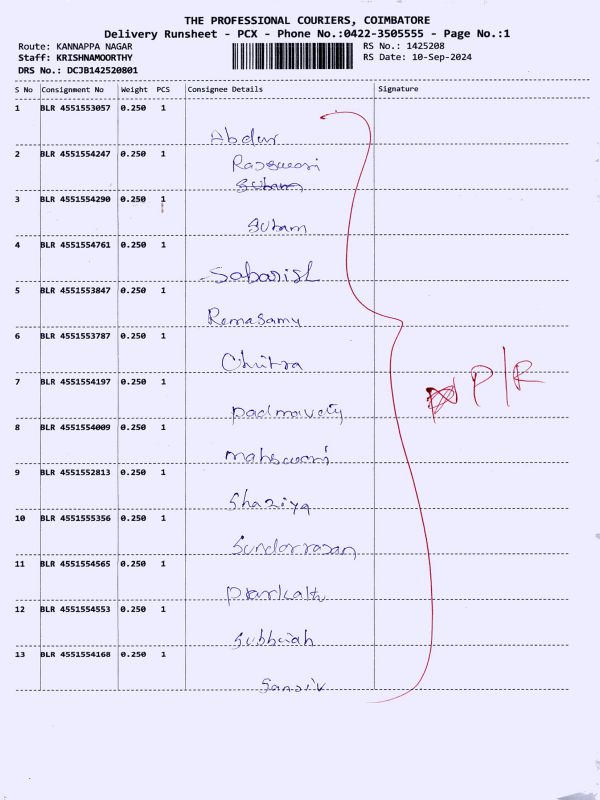 THE PROFESSIONAL COURIERS, COIMBATORE
Delivery Runsheet - PCX - Phone No.:0422-3505555 - Page No.:1
Route: KANNAPPA NAGAR RS No.: 1425208
Staff: KRISHNAMOORTHY RS Date: 10-Sep-2024
DRS No.: DCJB142520801
S No Consignment No Weight PCS Consignee Details Signature
1 BLR 4551553057 0.250 1
Abdur
2 BLR 4551554247 0.250 1
Rajeswari
3 BLR 4551554290 0.250 1
Subam
4 BLR 4551554761 0.250 1
Sabarish
5 BLR 4551553847 0.250 1
Remasamy
6 BLR 4551553787 0.250 1
Chitra
7 BLR 4551554197 0.250 1
P/R
Padmavaty
8 BLR 4551554009 0.250 1
maheswari
9 BLR 4551552813 0.250 1
Shaziya
10 BLR 4551555356 0.250 1
Sundarrasan
11 BLR 4551554565 0.250 1
12 BLR 4551554553 0.250 1
Subbaiah
13 BLR 4551554168 0.250 1